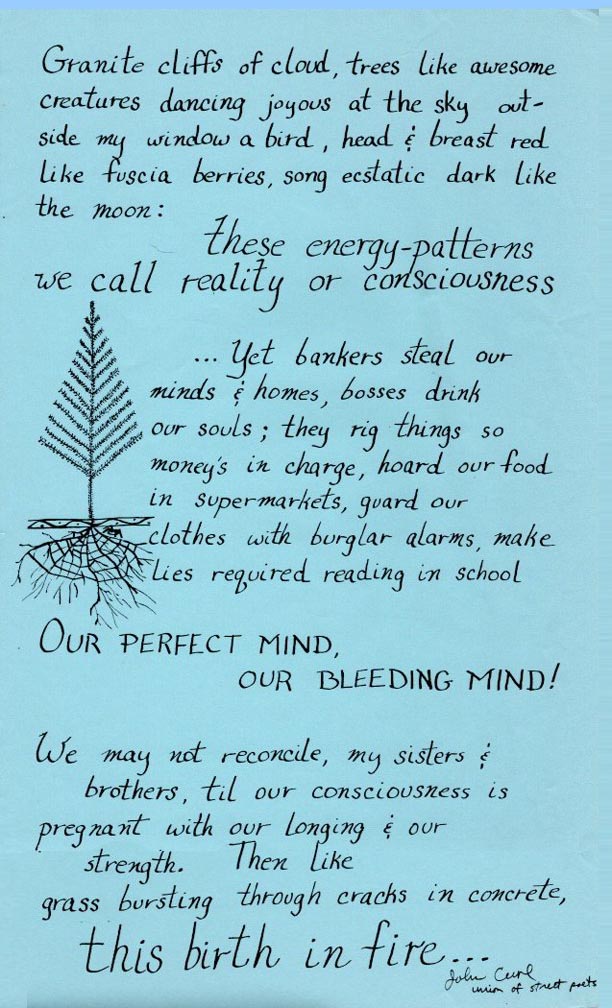 Granite cliffs of cloud, trees like awesome
creatures dancing joyous at the sky out-
side my window a bird, head & breast red
like fuscia berries, song ecstatic dark like
the moon:
these energy-patterns
we call reality or consciousness
... Yet bankers steal our
minds & homes, bosses drink
our souls; they rig things so
money's in charge, hoard our food
in supermarkets, guard our
clothes with burglar alarms, make
lies required reading in school
OUR PERFECT MIND,
OUR BLEEDING MIND!
We may not reconcile, my sisters &
brothers, til our consciousness is
pregnant with our longing & our
strength. Then like
grass bursting through cracks in concrete,
this birth in fire...
John Curl
union of street poets